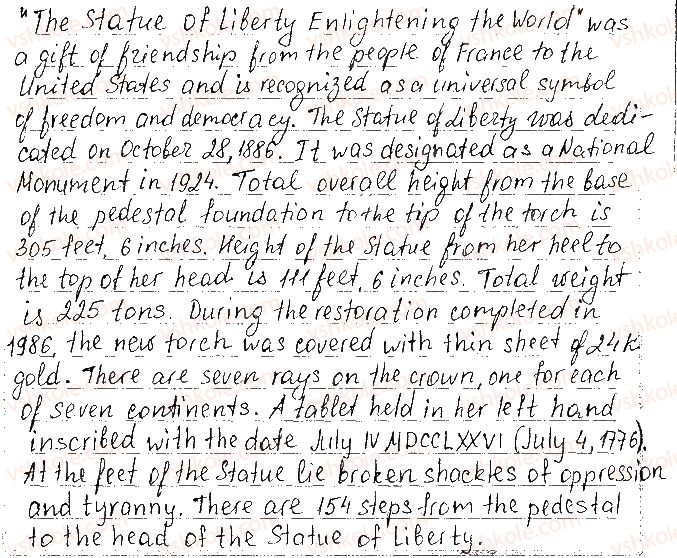 "The Statue of Liberty Enlightening the World" was
a gift of friendship from the people of France to the
United States and is recognized as a universal symbol
of freedom and democracy. The Statue of Liberty was dedi-
cated on October 28, 1886. It was designated as a National
Monument in 1924. Total overall height from the base
of the pedestal foundation to the tip of the torch is
305 feet, 6 inches. Height of the Statue from her heel to
the top of her head is 111 feet, 6 inches. Total weight
is 225 tons. During the restoration completed in
1986, the new torch was covered with thin sheet of 24k
gold. There are seven rays on the crown, one for each
of seven continents. A tablet held in her left hand
inscribed with the date July IV MDCCLXXVI (July 4, 1776).
At the feet of the Statue lie broken shackles of oppression
and tyranny. There are 154 steps from the pedestal
to the head of the Statue of Liberty.